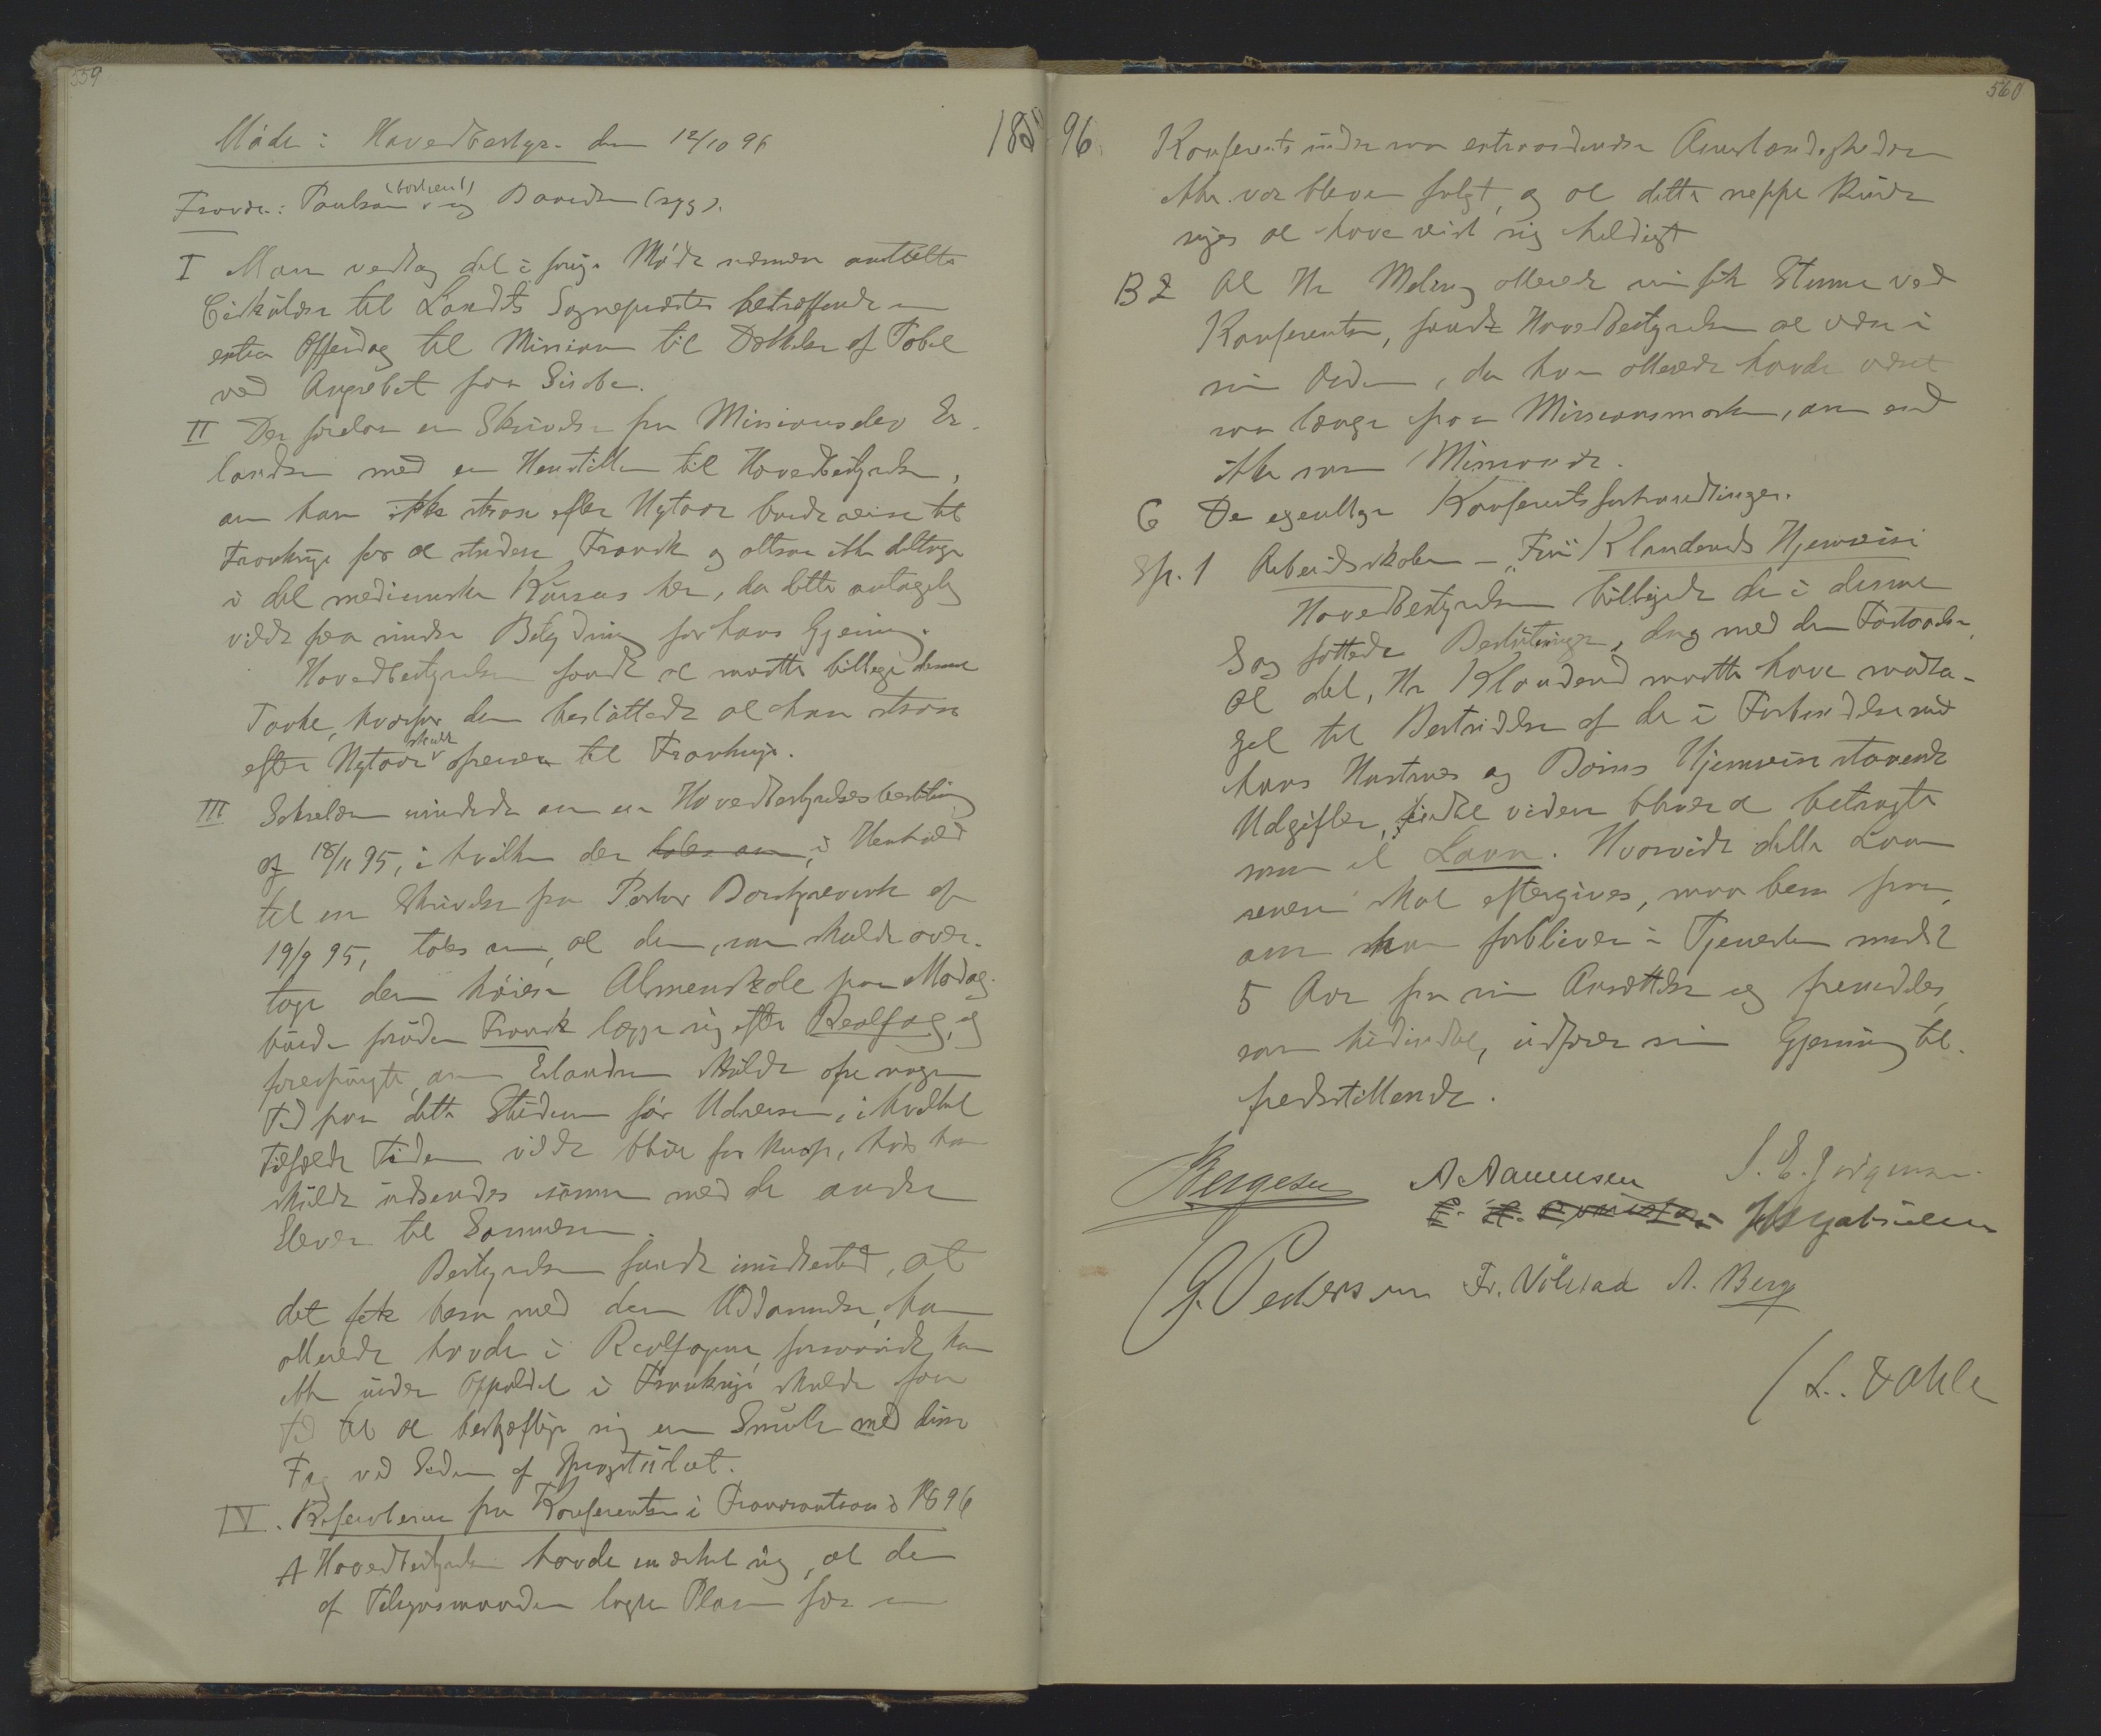 559
Møde i Hovedbestyr. den 12/10 96
1896
Fravær.: Paulsen (bortreist) og Davidsen (syg).
I Man vedtog det i forrige Møde nævnte
Cirkulære til Landets Sogneprester betræffende en
extra Offerdag til Missionen til Dækkelse af Tabet
ved Angrebet paa Sirabe.
II Der forelaa en Skrivelse fra Missionselev Er-
landsen med en Henstillen til Hovedbestyrelsen,
om han ikke strax efter Nytaar burde reise til
Frankrige for at studere Fransk og altsaa ikke deltage
i det medicinske Kursus her, da dette antagelig
vilde faa mindre Betydning for hans Gjerning.
Hovedbestyrelsen fandt at maatte billige denne
Tanke, hvorfor den besluttede at han strax
efter Nytaar skulde afreise til Frankrige.
III Sekretæren mindede om en Hovedbestyrelsesbeslutning
af 18/11 95, i hvilken der i Henhold
til en Skrivelse fra Pastor Borchgrevink af
19/9 95, tales om, at den, som skulde over-
tage den høiere Almenskole paa Madag.
burde foruden Fransk lægge sig efter Realfag, og
forespurgte, om Erlandsen skulde ofre nogen
Tid paa dette Studium før Udreisen, i hvilket
Tilfælde Tiden vilde blive for knap, hvis han
skulde udsendes sammen med de andre
Elever til Sommeren.
Bestyrelsen fandt imidlertid, at
det fik bero med den Uddannelse, han
allerede havde i Realfagene, forsaavidt han
ikke under Opholdet i Frankrige skulde faa
Tid til at beskjæftige sig en Smule med disse
Fag ved Siden af Sprogstudiet.
IV. Referaterne fra Konferentsen i Fianarantsoa i 1896
A Hovedbestyrelsen havde mærket sig, at den
af Tilsynsmanden lagte Plan for en
560
Konferents under saa extraordinære Omstændigheder
ikke var bleven fulgt, og at dette neppe kunde
siges at have vist sig heldigt
B 2 At Hr Meling allerede nu fik Stemme ved
Konferentsen, fandt Hovedbestyrelsen at være i
sin Orden, da han allerede havde været
saa længe paa Missionsmarken, om end
ikke som Missionær.
C De egentlige Konferentsforhandlinger.
Sp. 1 Arbeidsskolen – Fru Klandruds Hjemreise
Hovedbestyrelsen billigede de i denne
Sag fattede Beslutninger, dog med den Forstaaelse,
at det, Hr Klandrud maatte have modta-
get til Bestridelse af de i Forbindelse med
hans Hustrues og Børns Hjemreise staaende
Udgifter, indtil videre bliver at betragte
som et Laan. Hvorvidt dette Laan
senere skal eftergives, maa bero paa,
om han forbliver i Tjenesten mindst
5 Aar fra sin Ansættelse og fremdeles,
som hidindtil, udfører sin Gjerning til-
fredsstillende.
Bergesen A Aanensen S. E. Jørgensen
Gabrielsen
G. Pedersen Fr. Völstad A. Berg
/ L. Dahle